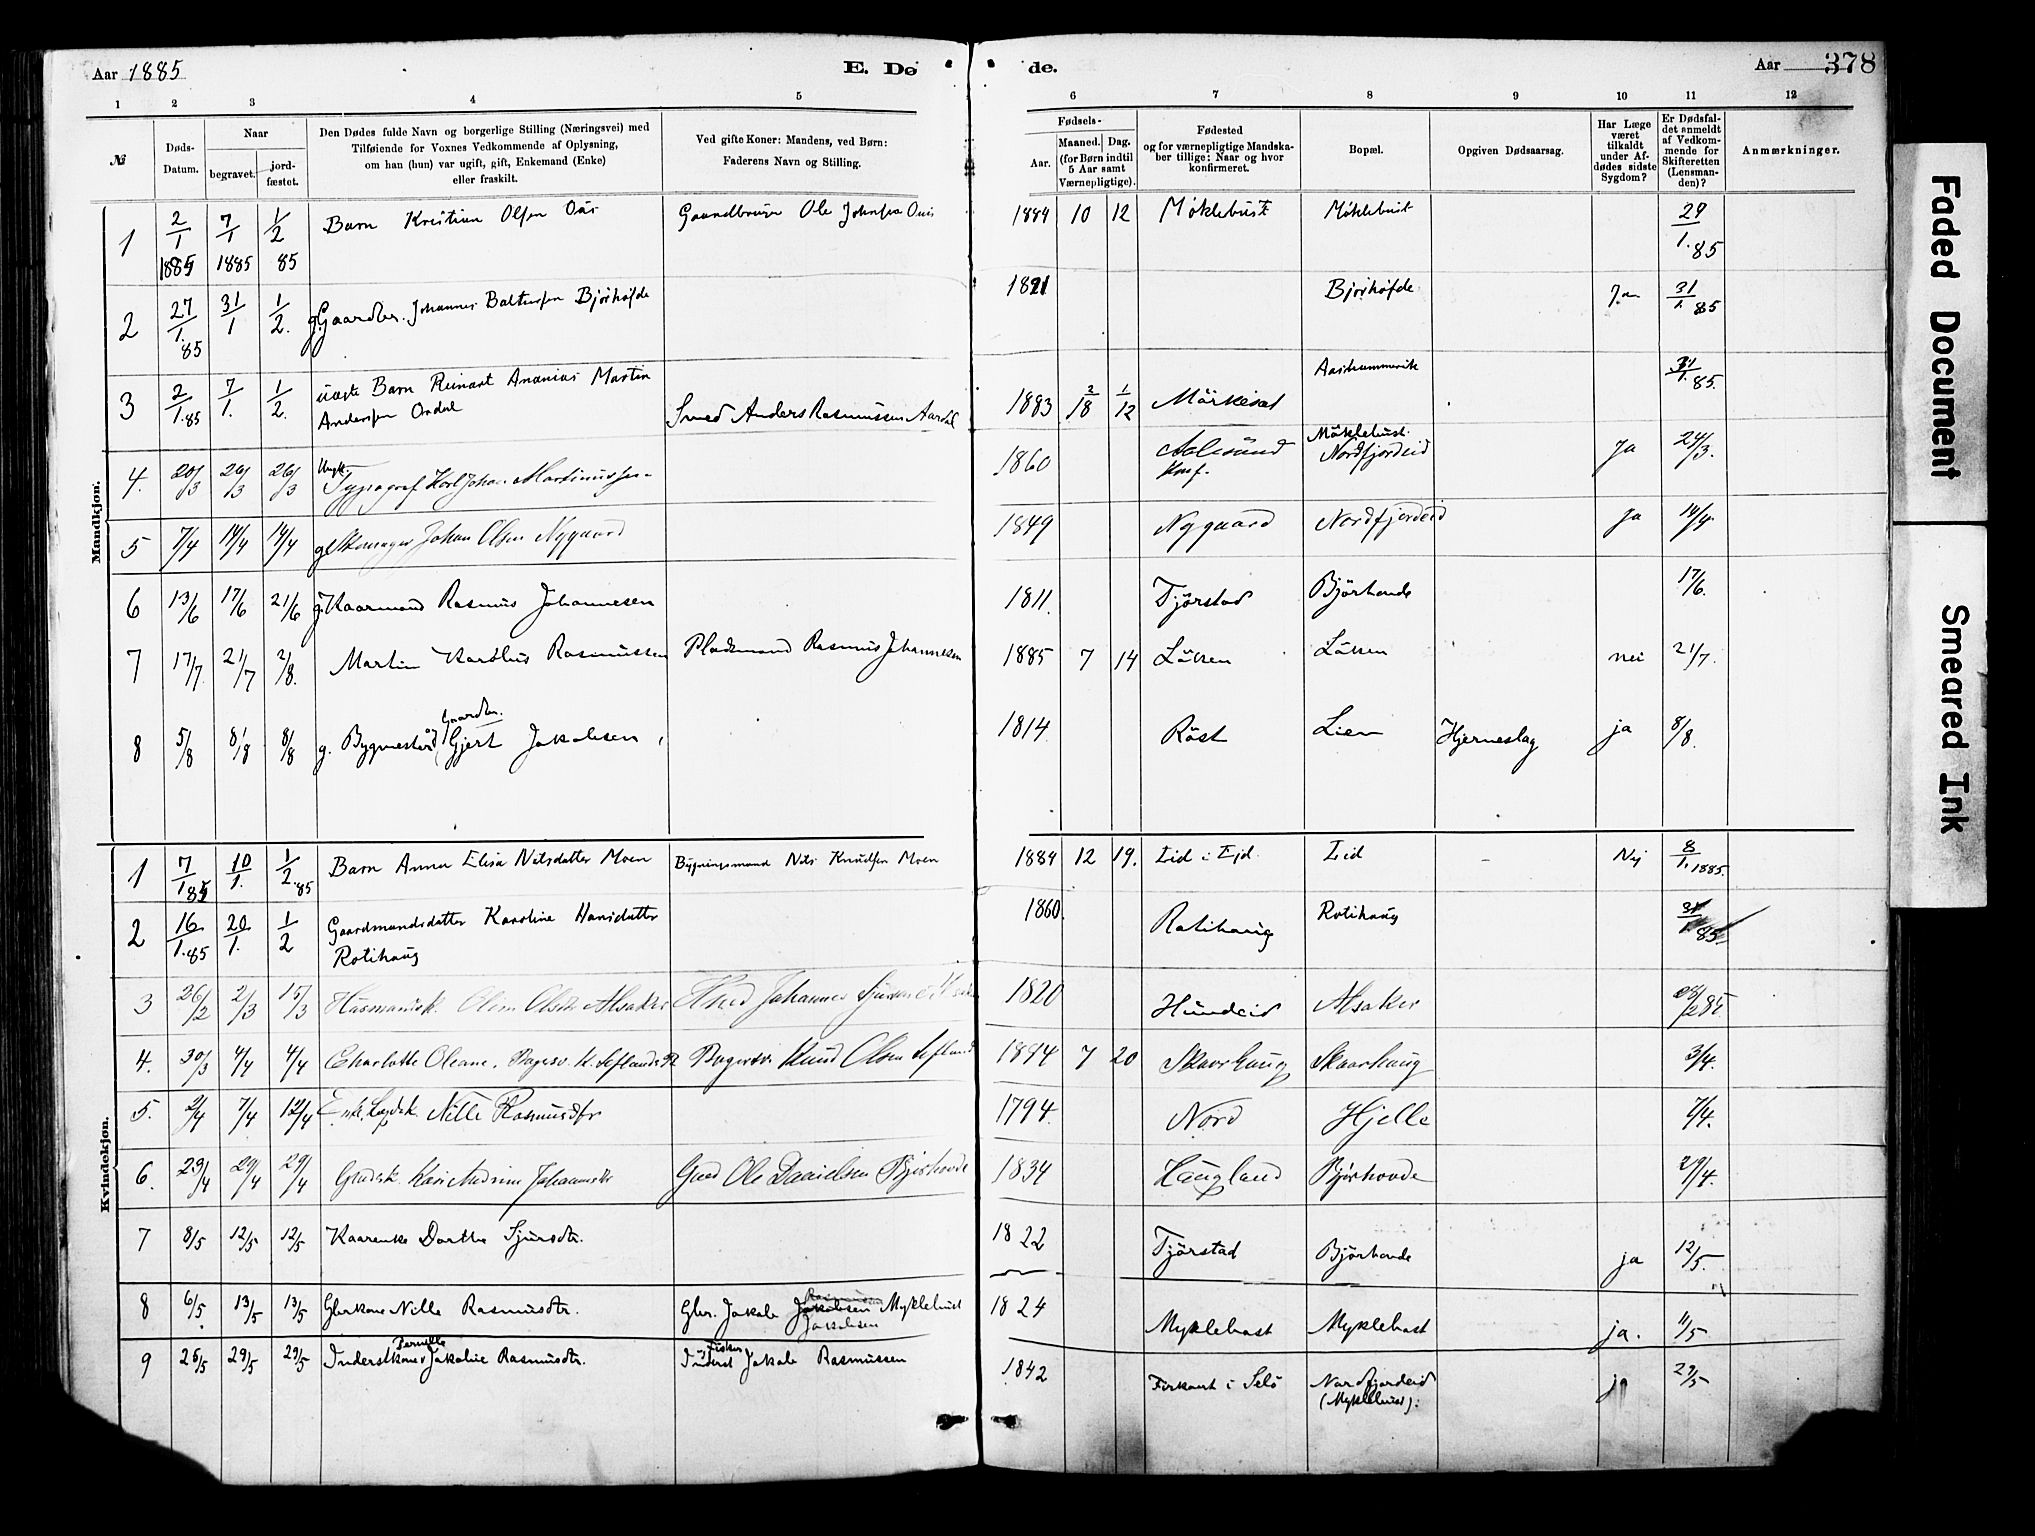 Aar 1885
E. Dø
de.
Aar
378
1 2 3 4 5 6 7 8 9 10 11 12
№
Døds-
Datum.
Naar
begravet.
jord-
fæstet.
Den Dødes fulde Navn og borgerlige Stilling (Næringsvei) med
Tilføiende for Voxnes Vedkommende af Oplysning,
om han (hun) var ugift, gift, Enkemand (Enke)
eller fraskilt.
Ved gifte Koner: Mandens, ved Børn:
Faderens Navn og Stilling.
Fødsels-
Aar.
Maaned.
Dag.
(for Børn indtil
5 Aar samt
Værnepligtige).
Fødested
og for værnepligtige Mandska-
ber tillige: Naar og hvor
konfirmeret.
Bopæl.
Opgiven Dødsaarsag.
Har Læge
været
tilkaldt
under Af-
dødes sidste
Sygdom?
Er Dødsfal-
det anmeldt
af Vedkom-
mende for
Skifteretten
(Lensman-
den)?
Anmærkninger.
Mandkjøn.
1 2/1 1885 7/1 1885 1/2 85 Barn Kristian Olsen Gaardbruger Ole Johnsen 1884 10 12 Möklebust Möklebust 29/1.85
2 27/1.85 31/1 1/2. g. Gaardbr. Johannes Baltersen Bjørhofde 1821 Bjørhofde Ja 31/1.85
3 2/1.85 7/1. 1/2. Barn Reinart Ananias Martin
Andersen Smed Anders Rasmussen Aardal 1883 Mörkesat 31/1.85.
4. 20/3 26/3 26/3 Ungk.
Typograf Karl Johan Martinussen 1860 Aalesund
Konf. Möklebust.
Nordfjordeid Ja 24/3.
5 7/4 14/4 14/4 g Skomager Johan Olsen Nygaard 1849 Nygaard Nordfjordeid Ja 14/4
6 13/6 17/6 21/6 g. Kaarmand Rasmus Johannesen 1811. Tjörstad Bjørhovde 17/6.
7 17/7. 21/7 2/8. Martin Karolus Rasmussen Pladsmand Rasmus Johannesen 1885 7 14 Löken Löken nei 21/7.
8 5/8 8/8 8/8 g. Bygmester Gaardbr.
Gjert Jakobsen 1814 Röst Lien Hjerneslag ja 8/8.
Kvindekjøn.
1 7/1 85 10/1. 1/2.85 Barn Anna Elisa Nilsdatter Moen Bygningsmand Nils Knudsen Moen 1884 12 19. Eid i Ejd. Eid - Nej 8/1.1885.
2 16/1.85 20/1. 1/2 Gaardmandsdatter Karoline Hansdatter
Rotihaug 1860. Rotihaug Rotihaug 31/1 85.
3 26/2 2/3 15/3 Husmandsk. Olsdtr Alsaker Johannes 1820 Hundeid Alsaker 28/2 85
4. 30/3 4/4 4/4 Charlotte Oleane, Knud Olsen Sefland 7 20 Skaarhaug Skaarhaug 3/4.
5. 2/4 7/4 12/4 Nille Rasmusdtr 1794. Nord Hjelle 7/4.
6. 23/4 29/4 29/4 Johannsdtr Gaard Ole Danielsen Bjørhovde 1834 Haugland Bjørhovde 29/4.
7 8/5 12/5 12/5 Kaarenke Dorthe Sjursdtr. 1822 Tjörstad Bjørhovde ja 12/5.
8 6/5. 13/5 13/5 Gbrkone Nille Rasmusdtr. Gbr. Jakob Jakobsen Myklebust
Jakobsen 1824 Myklebust Myklebust ja. 11/5
9 26/5 29/5 29/5 Pernille
Inderstkone Jakobine Rasmusdtr. Fisker
Inderst Jakob Rasmussen 1842 Firkant i Selö Nordfjordeid
(Myklebust): ja 29/5
Faded Document
Smeared Ink